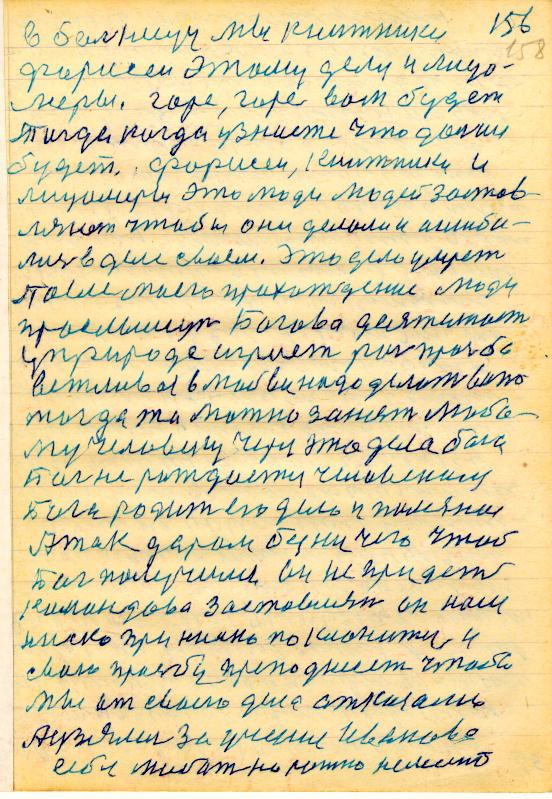 156
158
в больницу мы книжники
фарисеи этому делу и лицо-
меры. горе, горе вам будет
тогда когда узнаете что данни
будет. фарисеи, книжники и
лицомеры это люди людей застав
ляют чтобы они делали и ошиба-
лися в деле своем. Это дело умрет
после моего прохождение люди
прослышут Богова деятельност
у природе играет рол прозьба
вежливая в любви надо делат вот
тогда то можно занят любо-
му человеку через это дела бога
Бог не рождается человеком
Бога родит его дело и понятие
А так даром без ни чего чтоб
Бог получился он не придет
командова заставлят он нам
ниско принижно поклонится и
свою прозьбу преподнесет чтобы
мы от своего дела отказались
А взялися за учение Иванова
себя любит но ротно не